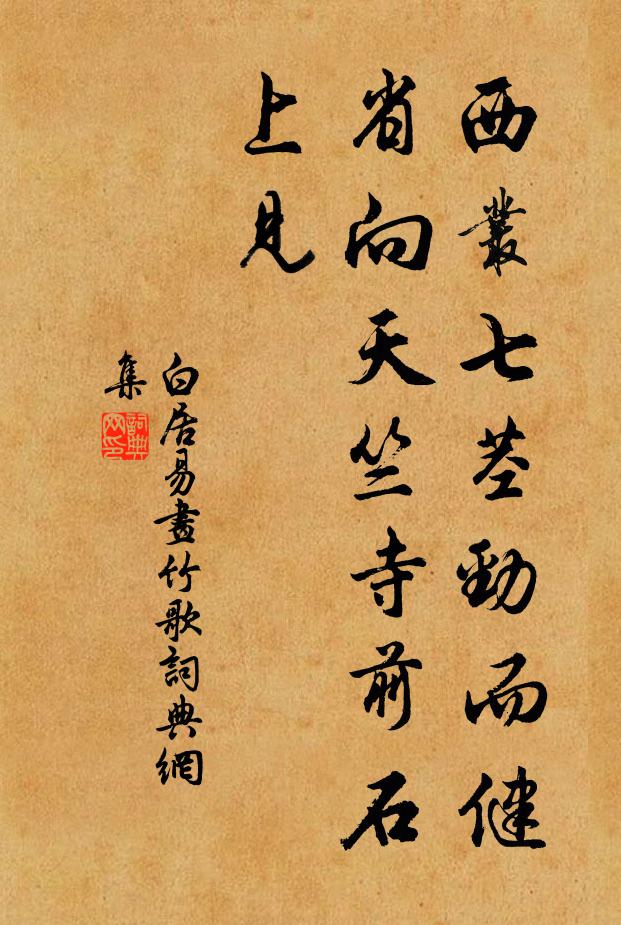 西叢七莖勁而健
省向天竺寺前石
上見
白居易畫竹歌詞典網
集
詞典
网印